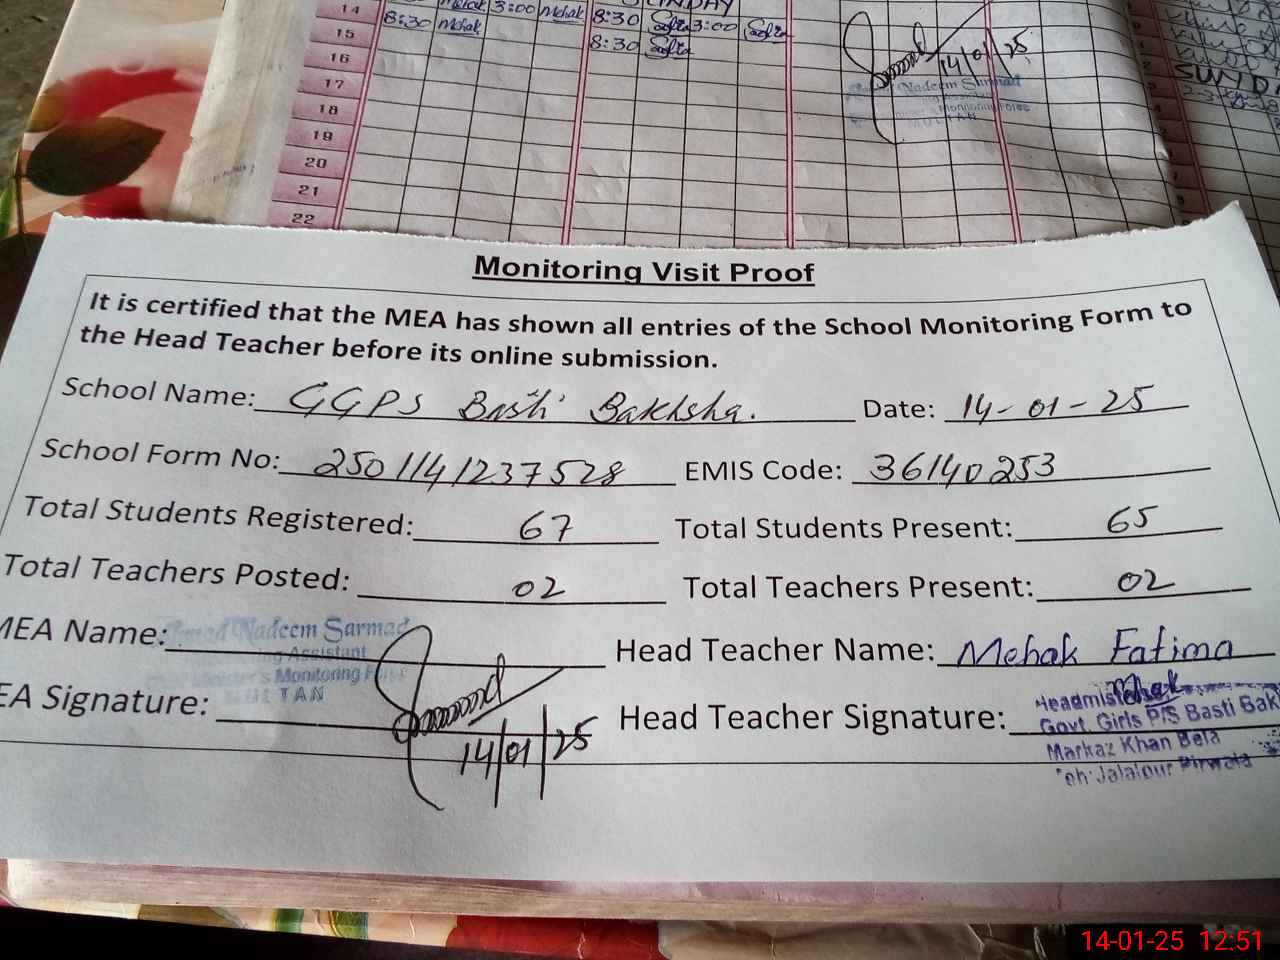 14 Mehak 3:00 Mehak SUNDAY
15 8:30 Mehak 8:30 Safia 3:00 Safia
16 8:30 Safia
17
18
19
20
21
22
14/01/25
Nadeem Sarmad
Monitoring Force
MULTAN
SUNDA
Monitoring Visit Proof
It is certified that the MEA has shown all entries of the School Monitoring Form to
the Head Teacher before its online submission.
School Name: GGPS Basti Bakhsha. Date: 14-01-25
School Form No: 2501141237528 EMIS Code: 36140253
Total Students Registered: 67 Total Students Present: 65
Total Teachers Posted: 02 Total Teachers Present: 02
MEA Name: Nadeem Sarmad Head Teacher Name: Mehak Fatima
ng Assistant
Monitoring Force
MULTAN
EA Signature: Head Teacher Signature: Mehak
14/01/25
Headmis
Govt. Girls P/S Basti Bak
Markaz Khan Bela
Teh: Jalalpur Pirwala
14-01-25 12:51